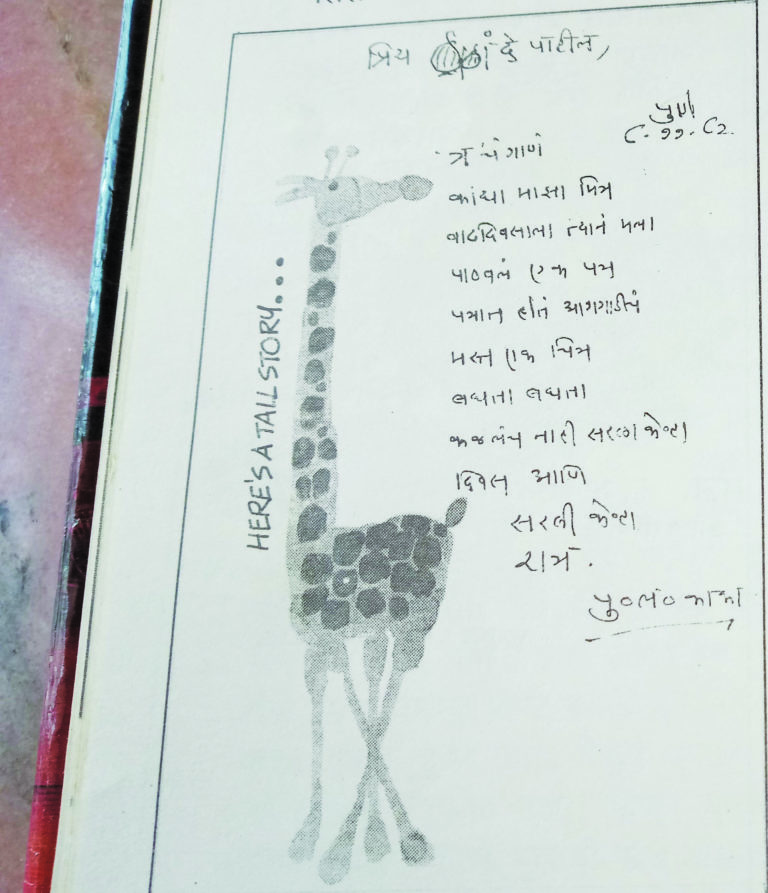 प्रिय दे पाटील,
पुणे
८.११.८२.
'त्र'चं गाणं
माझा मित्र
वाढदिवसाला त्यानं मला
पाठवलं एक पत्र
पत्रात होतं आगगाडीचं
मस्त एक चित्र
बघता बघता
कळलंच नाही सरला केव्हा
दिवस आणि
सरली केव्हा
रात्र.
पु०ल०काका
HERE'S A TALL STORY...